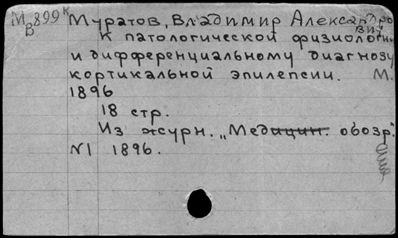 М899к Муратов, Владимир Александро
В вич
К патологической физиологии
и дифференциальному диагнозу
кортикальной эпилепсии. М.
1896
18 стр.
Из журн. „Медицин. обозр."
N1 1896.